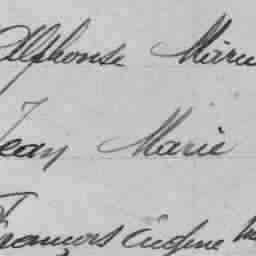 Alphonse Marie
Jean Marie
François Eugène